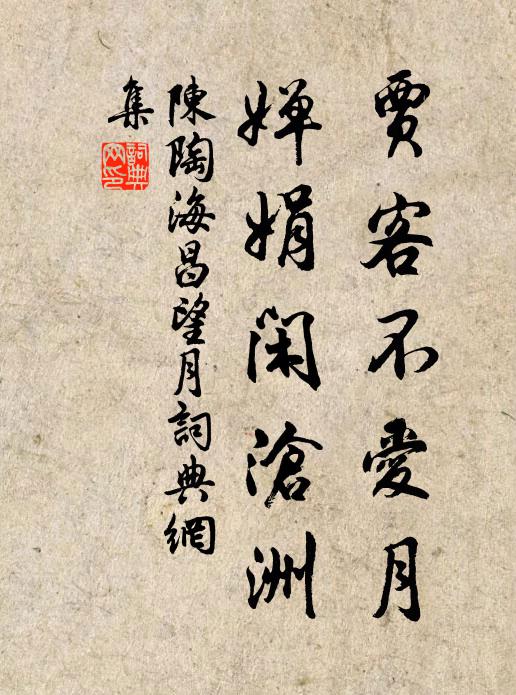 賈客不愛月
嬋娟閑滄洲
陳陶海昌望月詞典網
集
詞典網印